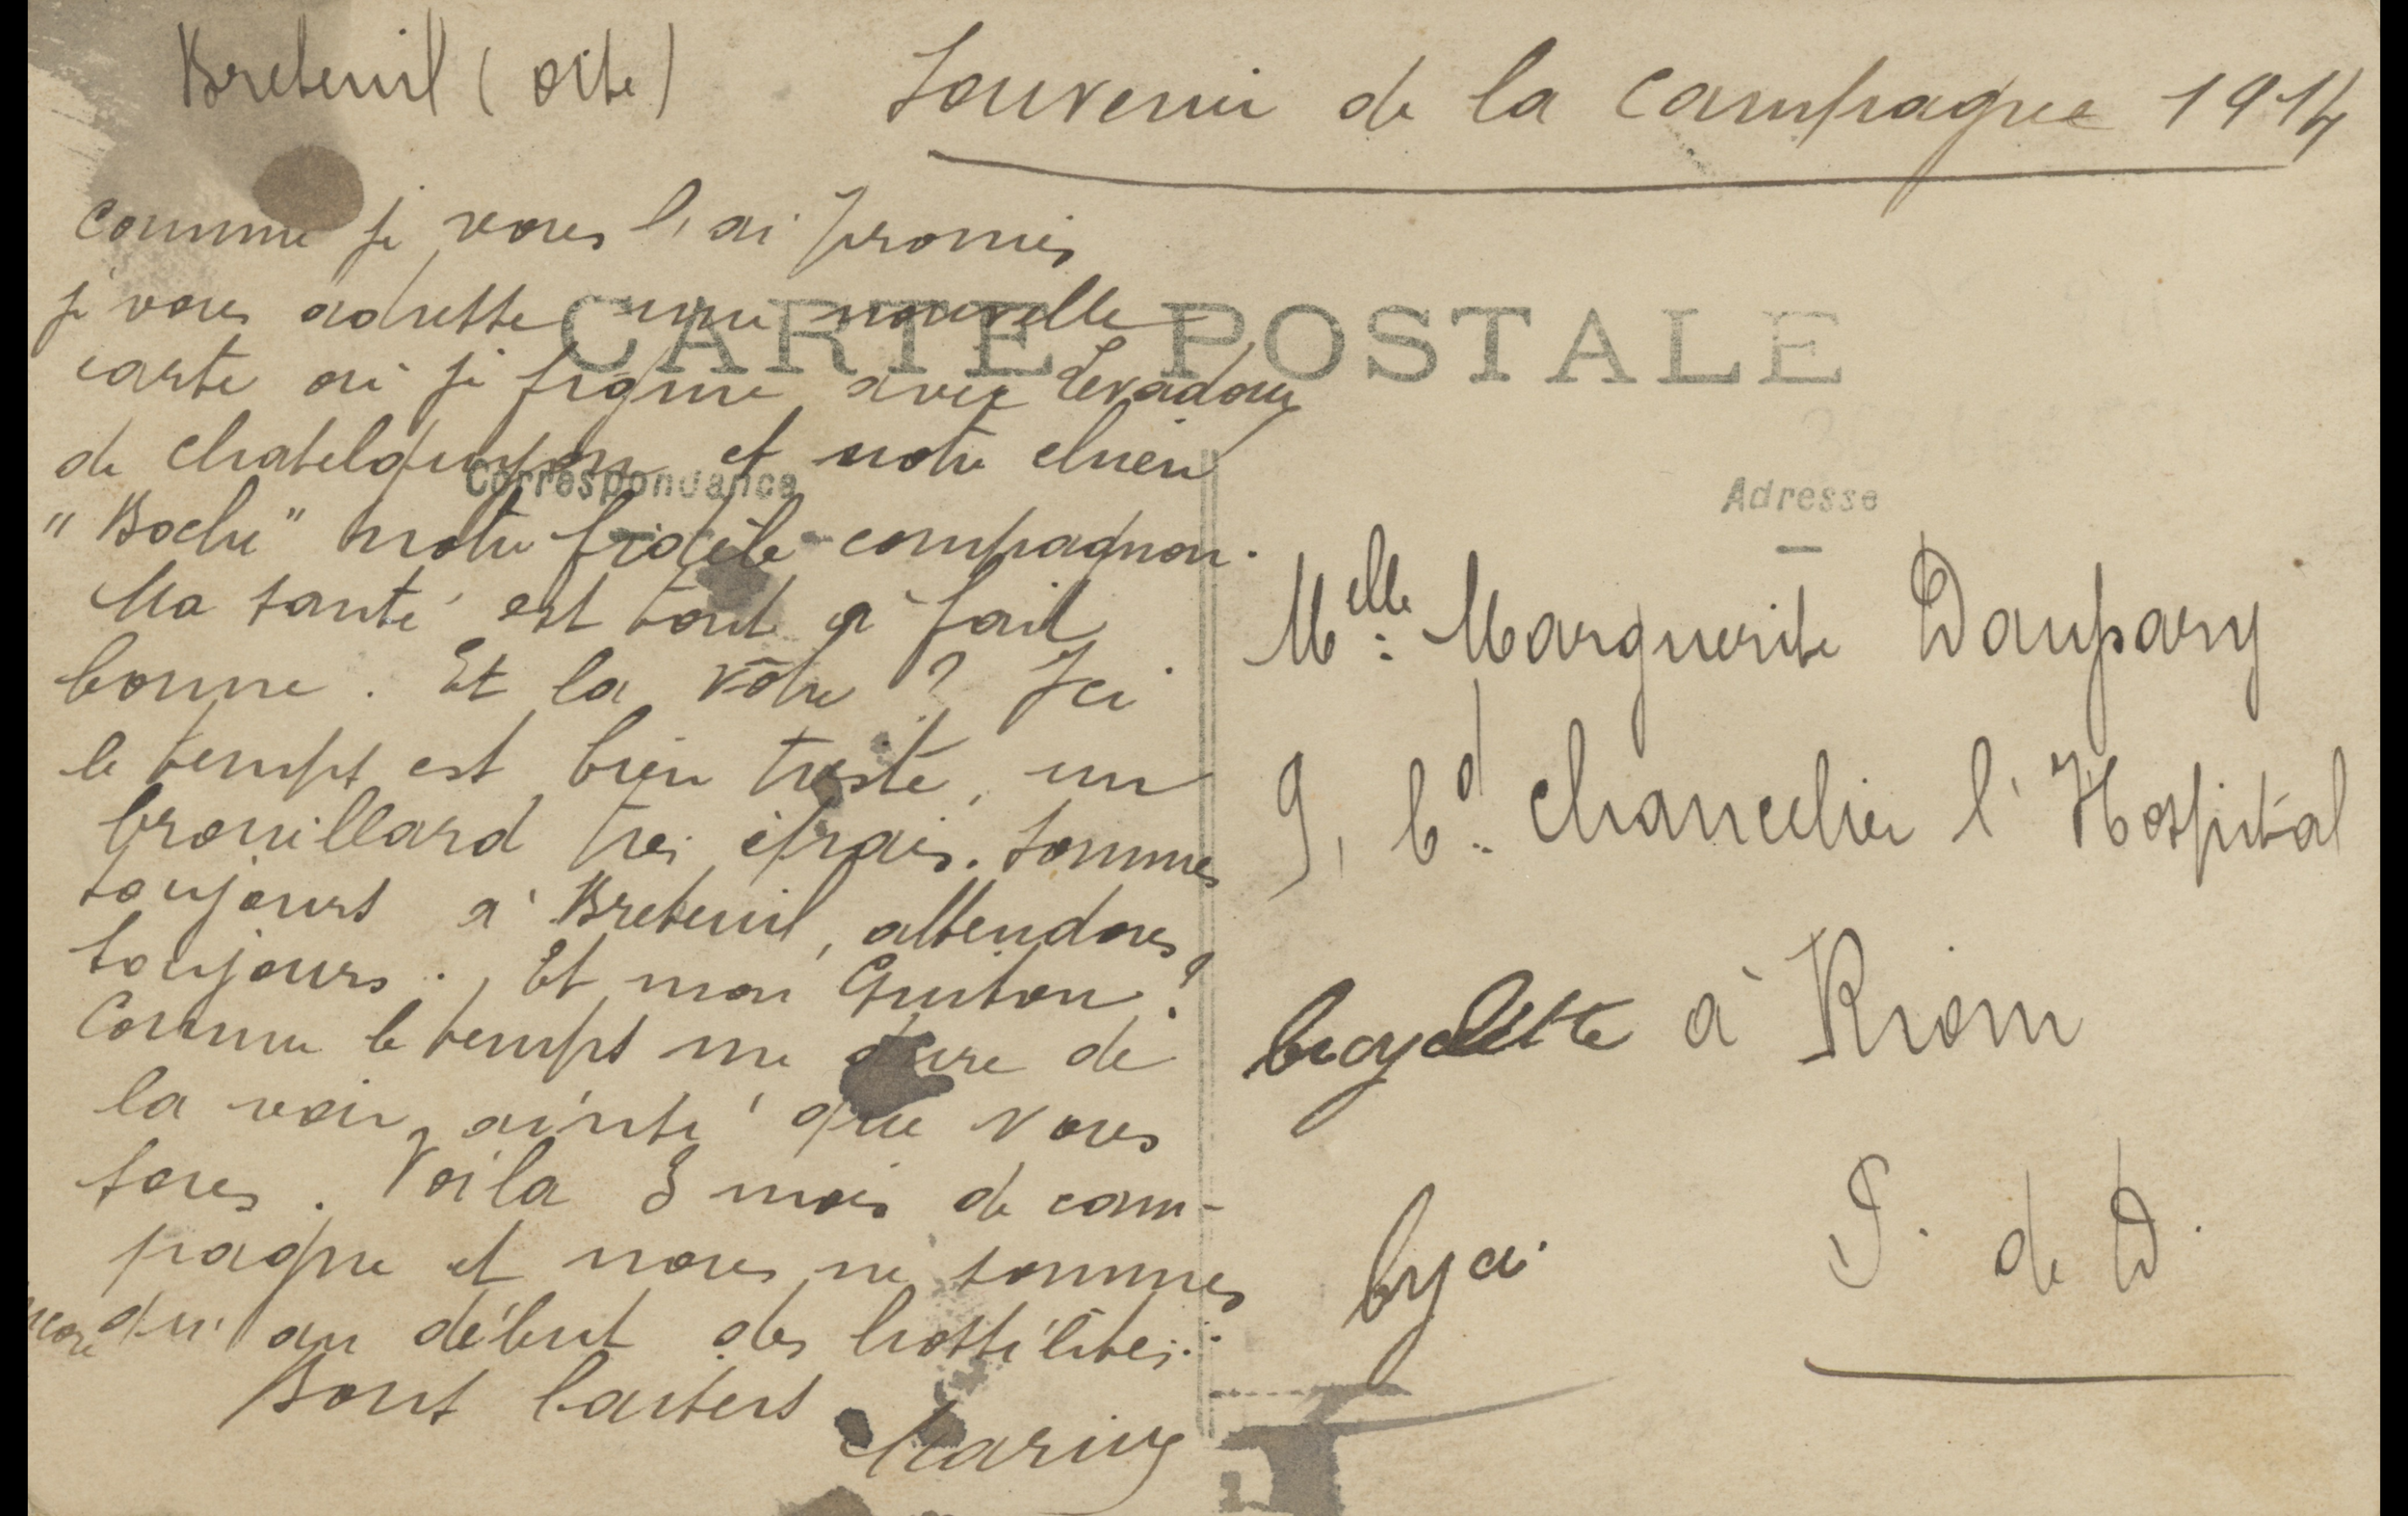 Breteuil (Oise)
Souvenir de la Campagne 1914
CARTE POSTALE
Correspondance
Adresse
Comme je vous l'ai promis
je vous adresse une nouvelle
carte où je figure avec Levadoux
de Chatelguyon et notre chien
"Boche" notre fidèle compagnon.
Ma santé est tout à fait
bonne. Et la vôtre ? Ici
le temps est bien triste, un
brouillard très épais. Sommes
toujours à Breteuil, attendons
toujours. Et mon Guiton ?
Comme le temps me dure de
la voir, ainsi que vous
tous. Voilà 3 mois de cam-
pagne et nous ne sommes
encore qu'au début des hostilités.
Bons baisers
Marius
Melle Marguerite Daupary
9, bd. Chancelier l'Hospital
bicyclette à Riom
P. de D.